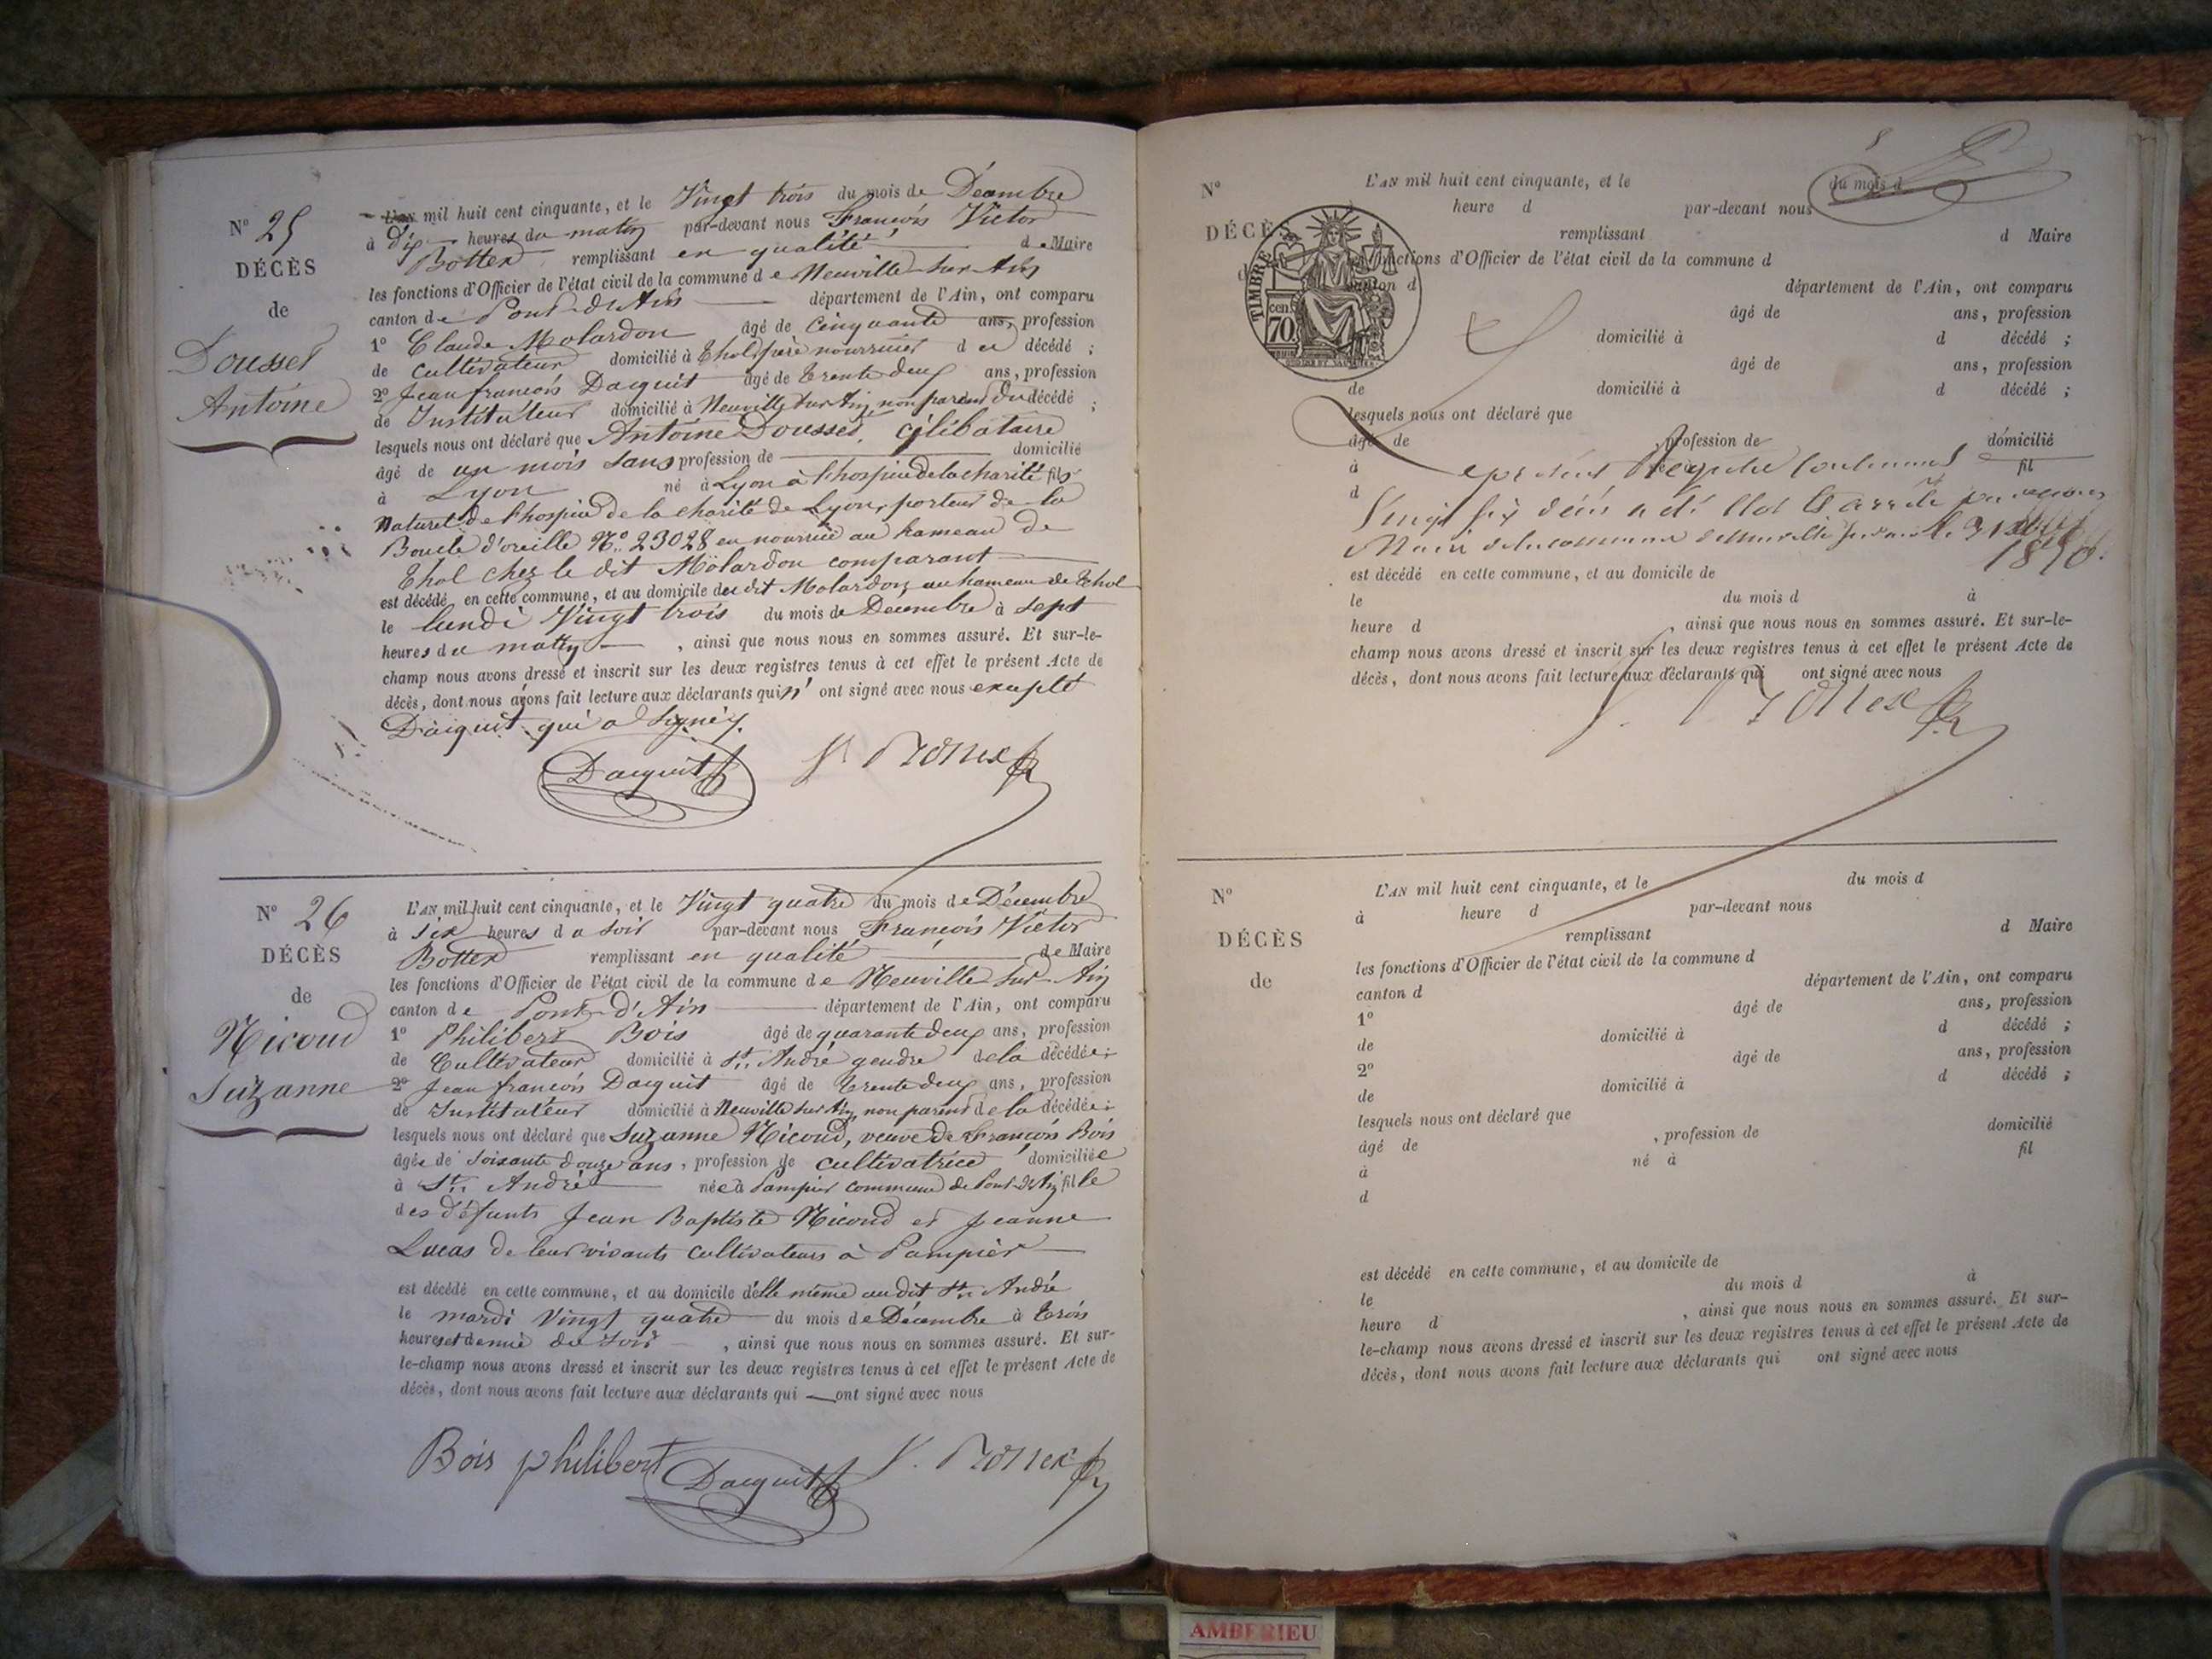 N° 25
DÉCÈS
de
Dousset
Antoine
L'AN mil huit cent cinquante, et le Vingt trois du mois de Décembre
à dix heures du matin par-devant nous François Victor
Bottex remplissant en qualité de Maire
les fonctions d'Officier de l'état civil de la commune de Neuville sur Ain
canton de Pont d'Ain département de l'Ain, ont comparu
1° Claude Molardon âgé de cinquante ans, profession
de cultivateur domicilié à Thol, père nourricier du décédé ;
2° Jean françois Dacquit âgé de trente deux ans, profession
de Instituteur domicilié à Neuville sur Ain, non parent du décédé ;
lesquels nous ont déclaré que Antoine Dousset, célibataire
âgé de un mois sans profession de domicilié
à Lyon né à Lyon à l'hospice de la charité fils
Naturel de l'hospice de la charité de Lyon, porteur de la
Boucle d'oreille N° 23028 en nourrice au hameau de
Thol chez le dit Molardon comparant
est décédé en cette commune, et au domicile du dit Molardon au hameau de Thol
le lundi Vingt trois du mois de Décembre à sept
heures du matin , ainsi que nous nous en sommes assuré. Et sur-le-
champ nous avons dressé et inscrit sur les deux registres tenus à cet effet le présent Acte de
décès, dont nous avons fait lecture aux déclarants qui n' ont signé avec nous excepté
Dacquit qui a signé.
Dacquit V. Bottex
N° 26
DÉCÈS
de
Nicoud
Suzanne
L'AN mil huit cent cinquante, et le Vingt quatre du mois de Décembre
à six heures du soir par-devant nous François Victor
Bottex remplissant en qualité de Maire
les fonctions d'Officier de l'état civil de la commune de Neuville sur Ain
canton de Pont d'Ain département de l'Ain, ont comparu
1° Philibert Bois âgé de quarante deux ans, profession
de Cultivateur domicilié à St. André gendre de la décédée ;
2° Jean françois Dacquit âgé de trente deux ans, profession
de Instituteur domicilié à Neuville sur Ain, non parent de la décédée ;
lesquels nous ont déclaré que Suzanne Nicoud, veuve de François Bois
âgée de soixante douze ans, profession de cultivatrice domiciliée
à St. André née à Pampier commune de Pont d'Ain fille
des défunts Jean Baptiste Nicoud et Jeanne
Lucas de leur vivants cultivateurs à Pampier
est décédé en cette commune, et au domicile d'elle même au dit St. André
le mardi Vingt quatre du mois de Décembre à trois
heures et demie du soir , ainsi que nous nous en sommes assuré. Et sur-
le-champ nous avons dressé et inscrit sur les deux registres tenus à cet effet le présent Acte de
décès, dont nous avons fait lecture aux déclarants qui ont signé avec nous
Bois philibert Dacquit V. Bottex
N°
DÉCÈS
L'AN mil huit cent cinquante, et le du mois d
heure d par-devant nous
remplissant d Maire
fonctions d'Officier de l'état civil de la commune d
canton d département de l'Ain, ont comparu
TIMBRE
70 cen
âgé de ans, profession
domicilié à d décédé ;
âgé de ans, profession
de domicilié à d décédé ;
lesquels nous ont déclaré que
âgé de , profession de domicilié
à fil
d
Le présent Registre contenant
Vingt six décès a été clos et arrêté par nous
Maire de la commune de Neuville sur Ain le 31
1850.
est décédé en cette commune, et au domicile de
le du mois d à
heure d , ainsi que nous nous en sommes assuré. Et sur-le-
champ nous avons dressé et inscrit sur les deux registres tenus à cet effet le présent Acte de
décès, dont nous avons fait lecture aux déclarants qui ont signé avec nous
V. Bottex
N°
DÉCÈS
de
L'AN mil huit cent cinquante, et le du mois d
à heure d par-devant nous
remplissant d Maire
les fonctions d'Officier de l'état civil de la commune d
canton d département de l'Ain, ont comparu
1° âgé de ans, profession
de domicilié à d décédé ;
2° âgé de ans, profession
de domicilié à d décédé ;
lesquels nous ont déclaré que
âgé de , profession de domicilié
à né à fil
d
est décédé en cette commune, et au domicile de
le du mois d à
heure d , ainsi que nous nous en sommes assuré. Et sur-
le-champ nous avons dressé et inscrit sur les deux registres tenus à cet effet le présent Acte de
décès, dont nous avons fait lecture aux déclarants qui ont signé avec nous
AMBERIEU